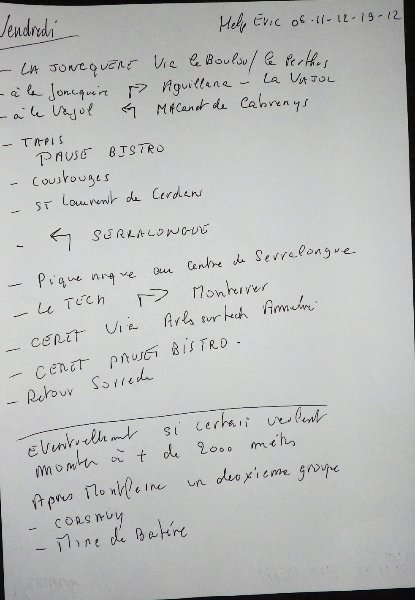 Vendredi
Help Eric 06-11-12-13-12
- LA JONCQUERE Via le Boulou / le Perthus
- à le Joncquère ↱ Aguillana - La VAJOL
- à le Vajol ↰ Macanet de Cabrenys
- TAPIS
PAUSE BISTRO
- Coustouges
- ST Laurent de Cerdans
- ↰ SERRALONGUE
- Pique nique au centre de Serralongue
- Le TECH ↱ Montferrer
- CERET Via Arles sur tech Amelie
- CERET PAUSE BISTRO.
- Retour Sorrede
Eventuellement si certain veulent
monter à + de 2000 mètres
Apres Montferrer un deuxieme groupe
- CORSAVY
- Mine de Batère